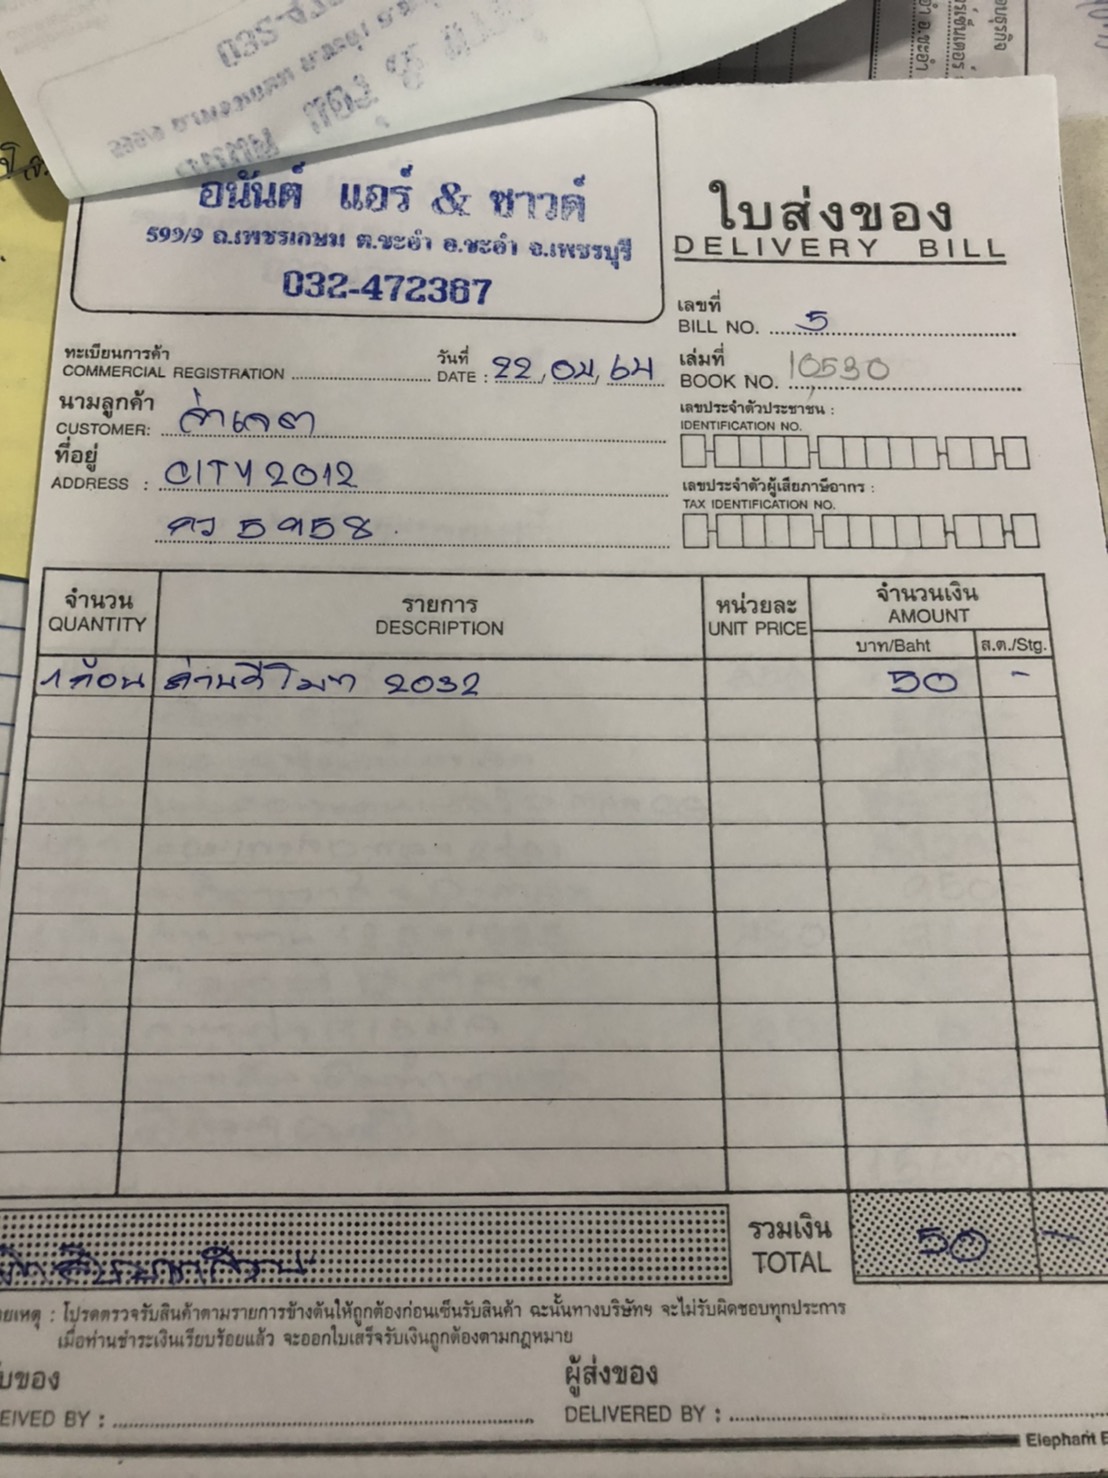 อนันต์ แอร์ & ซาวด์
599/9 ถ.เพชรเกษม ต.ชะอำ อ.ชะอำ จ.เพชรบุรี
032-472367
ใบส่งของ
DELIVERY BILL
เลขที่
BILL NO. 5
ทะเบียนการค้า
COMMERCIAL REGISTRATION
วันที่
DATE : 22, 04, 64
เล่มที่
BOOK NO. 10530
นามลูกค้า
CUSTOMER:
เลขประจำตัวประชาชน :
IDENTIFICATION NO.
ที่อยู่
ADDRESS : CITY 2012
กว 5958
เลขประจำตัวผู้เสียภาษีอากร :
TAX IDENTIFICATION NO.
จำนวน รายการ หน่วยละ จำนวนเงิน
QUANTITY DESCRIPTION UNIT PRICE AMOUNT
บาท/Baht ส.ต./Stg.
1 ก้อน ถ่านรีโมท 2032 50 -
รวมเงิน
TOTAL 50 -
ยเหตุ : โปรดตรวจรับสินค้าตามรายการข้างต้นให้ถูกต้องก่อนเซ็นรับสินค้า ฉะนั้นทางบริษัทฯ จะไม่รับผิดชอบทุกประการ
เมื่อท่านชำระเงินเรียบร้อยแล้ว จะออกใบเสร็จรับเงินถูกต้องตามกฎหมาย
บของ
EIVED BY :
ผู้ส่งของ
DELIVERED BY :
Elephant